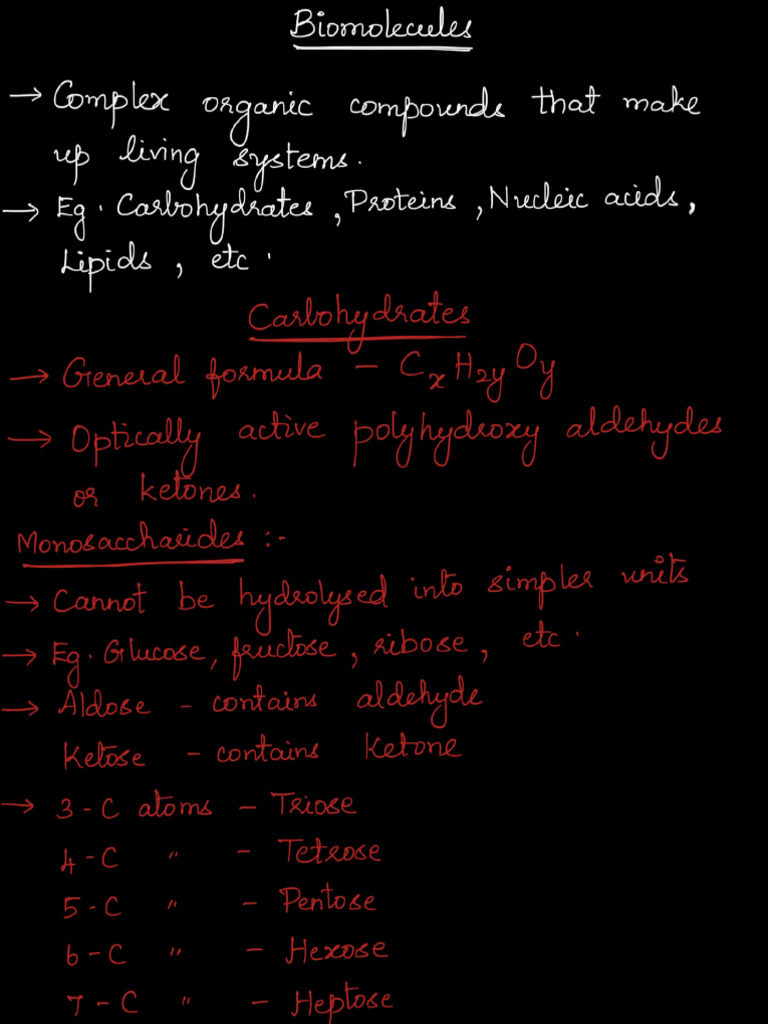 Biomolecules
→ Complex organic compounds that make
up living systems.
→ Eg. Carbohydrates, Proteins, Nucleic acids,
Lipids, etc.
Carbohydrates
→ General formula – CxH2yOy
→ Optically active polyhydroxy aldehydes
or ketones.
Monosaccharides :-
→ Cannot be hydrolysed into simpler units
→ Eg. Glucose, fructose, ribose, etc.
→ Aldose – contains aldehyde
Ketose – contains Ketone
→ 3-C atoms – Triose
4-C " – Tetrose
5-C " – Pentose
6-C " – Hexose
7-C " – Heptose